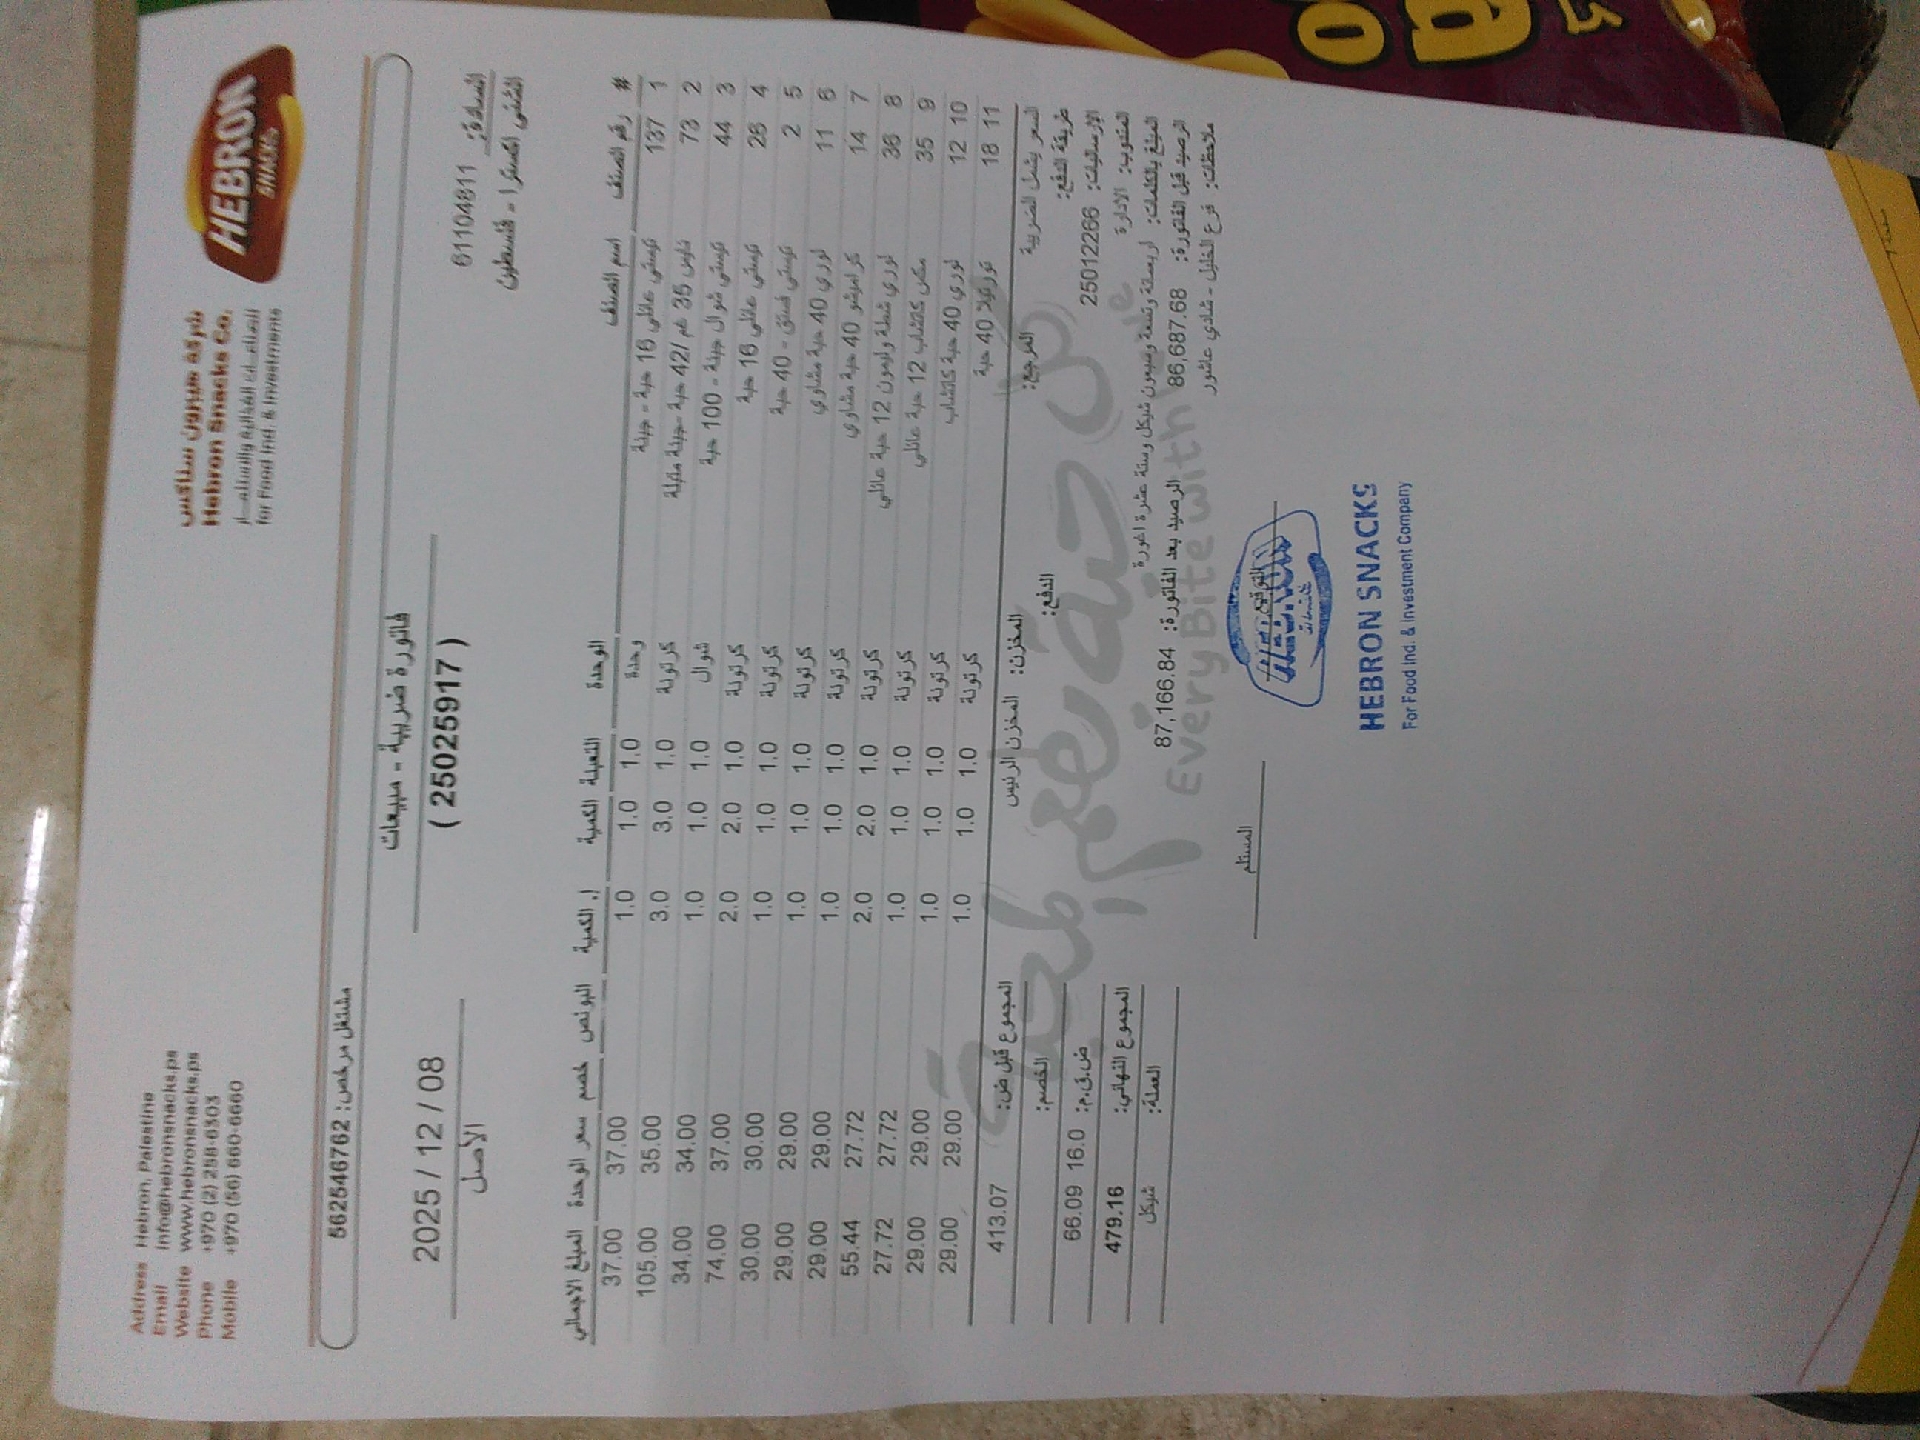 شركة هيبرون سناكس
Hebron Snacks Co.
للصناعات الغذائية والاستثمار
for Food Ind. & Investments
HEBRON
SNACKS
Address Hebron, Palestine
Email info@hebronsnacks.ps
Website www.hebronsnacks.ps
Phone +970 (2) 258-6303
Mobile +970 (56) 660-6660
مشتغل مرخص: 562546762
فاتورة ضريبية - مبيعات
( 25025917 )
السادة: 61104811
فلسطين
2025 / 12 / 08
الأصل
# رقم الصنف اسم الصنف الوحدة التعبئة الكمية ا. الكمية البونص خصم سعر الوحدة المبلغ الاجمالي
1 137 كرستي عائلي 16 حبة - جبنة وحدة 1.0 1.0 1.0 37.00 37.00
2 73 35 غم /42 حبة -جبنة كرتونة 1.0 3.0 3.0 35.00 105.00
3 44 كرستي شوال جبنة - 100 حبة شوال 1.0 1.0 1.0 34.00 34.00
4 28 كرستي عائلي 16 حبة كرتونة 1.0 2.0 2.0 37.00 74.00
5 2 كرستي فستق - 40 حبة كرتونة 1.0 1.0 1.0 30.00 30.00
6 11 لوري 40 حبة مشاوي كرتونة 1.0 1.0 1.0 29.00 29.00
7 14 كرانشو 40 حبة مشاوي كرتونة 1.0 1.0 1.0 29.00 29.00
8 36 لوري شطة وليمون 12 حبة عائلي كرتونة 1.0 2.0 2.0 27.72 55.44
9 35 مكس كاتشاب 12 حبة عائلي كرتونة 1.0 1.0 1.0 27.72 27.72
10 12 لوري 40 حبة كاتشاب كرتونة 1.0 1.0 1.0 29.00 29.00
11 18 تورتيلا 40 حبة كرتونة 1.0 1.0 1.0 29.00 29.00
السعر يشمل الضريبة المرجع: المخزن: المخزن الرئيس المجموع قبل ض: 413.07
طريقة الدفع: الدفع: الخصم:
الإرساليات: 25012266 ض.ق.م: 16.0 66.09
المندوب: الادارة المجموع النهائي: 479.16
المبلغ بالكلمات: اربعمئة وتسعة وسبعون شيكل وستة عشرة اغورة العملة: شيكل
الرصيد قبل الفاتورة: 86,687.68 الرصيد بعد الفاتورة: 87,166.84
ملاحظات: فرع الخليل - شادي عاشور
Every Bite with
التوقيع
المستلم
HEBRON SNACKS
For Food Ind. & Investment Company